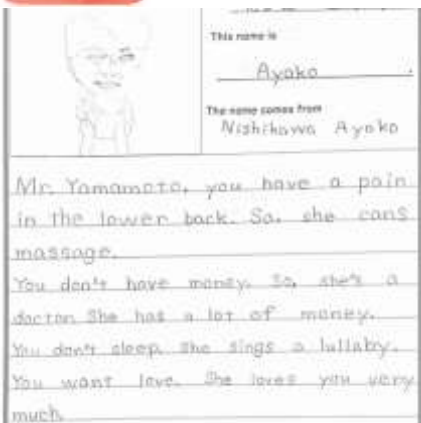 This name is
Ayako .
The name comes from
Nishikawa Ayako
Mr. Yamamoto, you have a pain
in the lower back. So, she cans
massage.
You don't have money. So, she's a
doctor. She has a lot of money.
You don't sleep. She sings a lullaby.
You want love. She loves you very
much.